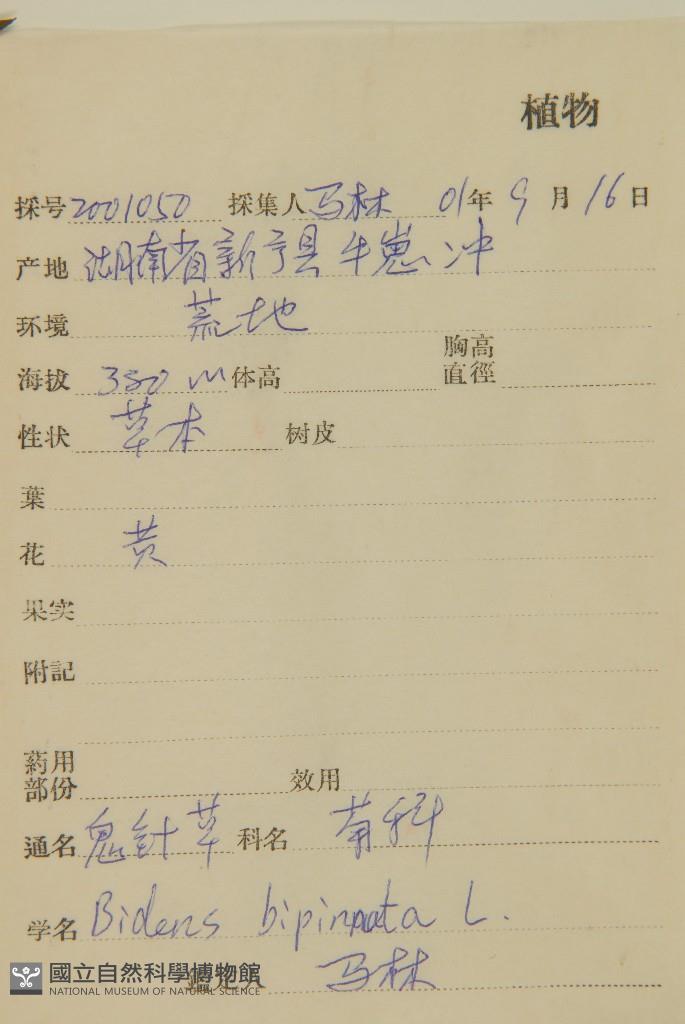 植物
採号 2001050 採集人 马林 01年 9月 16日
产地 湖南省新宁县牛崽冲
环境 荒地
海拔 350 m 体高 胸高直徑
性状 草本 树皮
葉
花 黄
果实
附記
葯用部份 效用
通名 鬼針草 科名 菊科
学名 Bidens bipinnata L.
鑑定人 马林
國立自然科學博物館
NATIONAL MUSEUM OF NATURAL SCIENCE